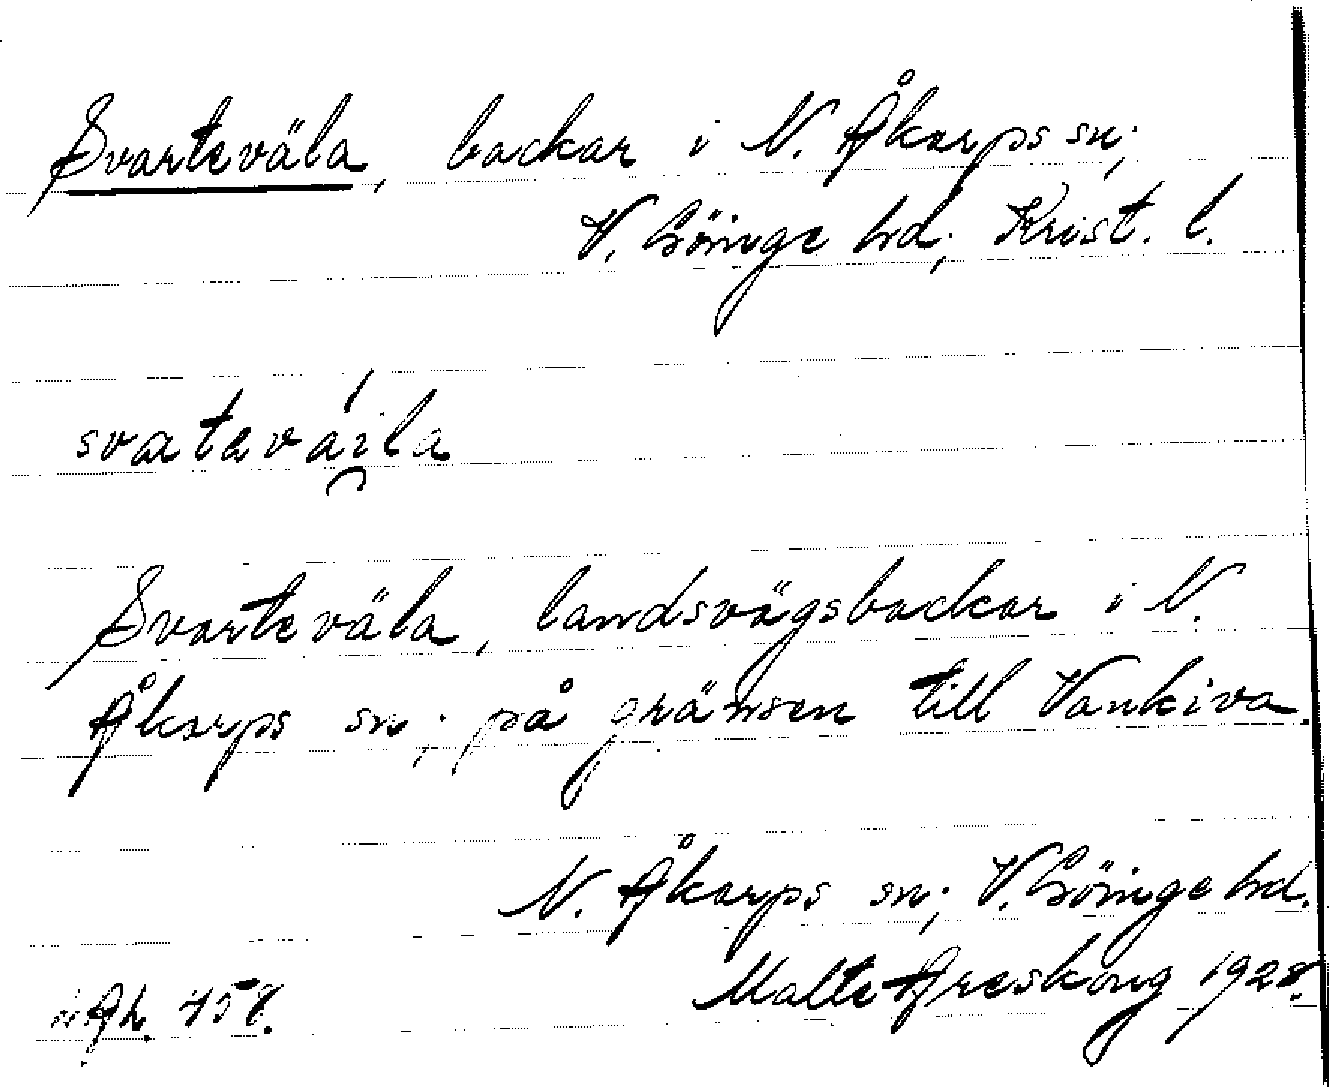 Svarteväla, backar i N. Åkarps sn;
V. Göinge hd; Krist. l.
svataväila
Svarteväla, landsvägsbackar i N.
Åkarps sn; på gränsen till Vankiva.
N. Åkarps sn; V. Göinge hd.
Malte Areskoug 1928.